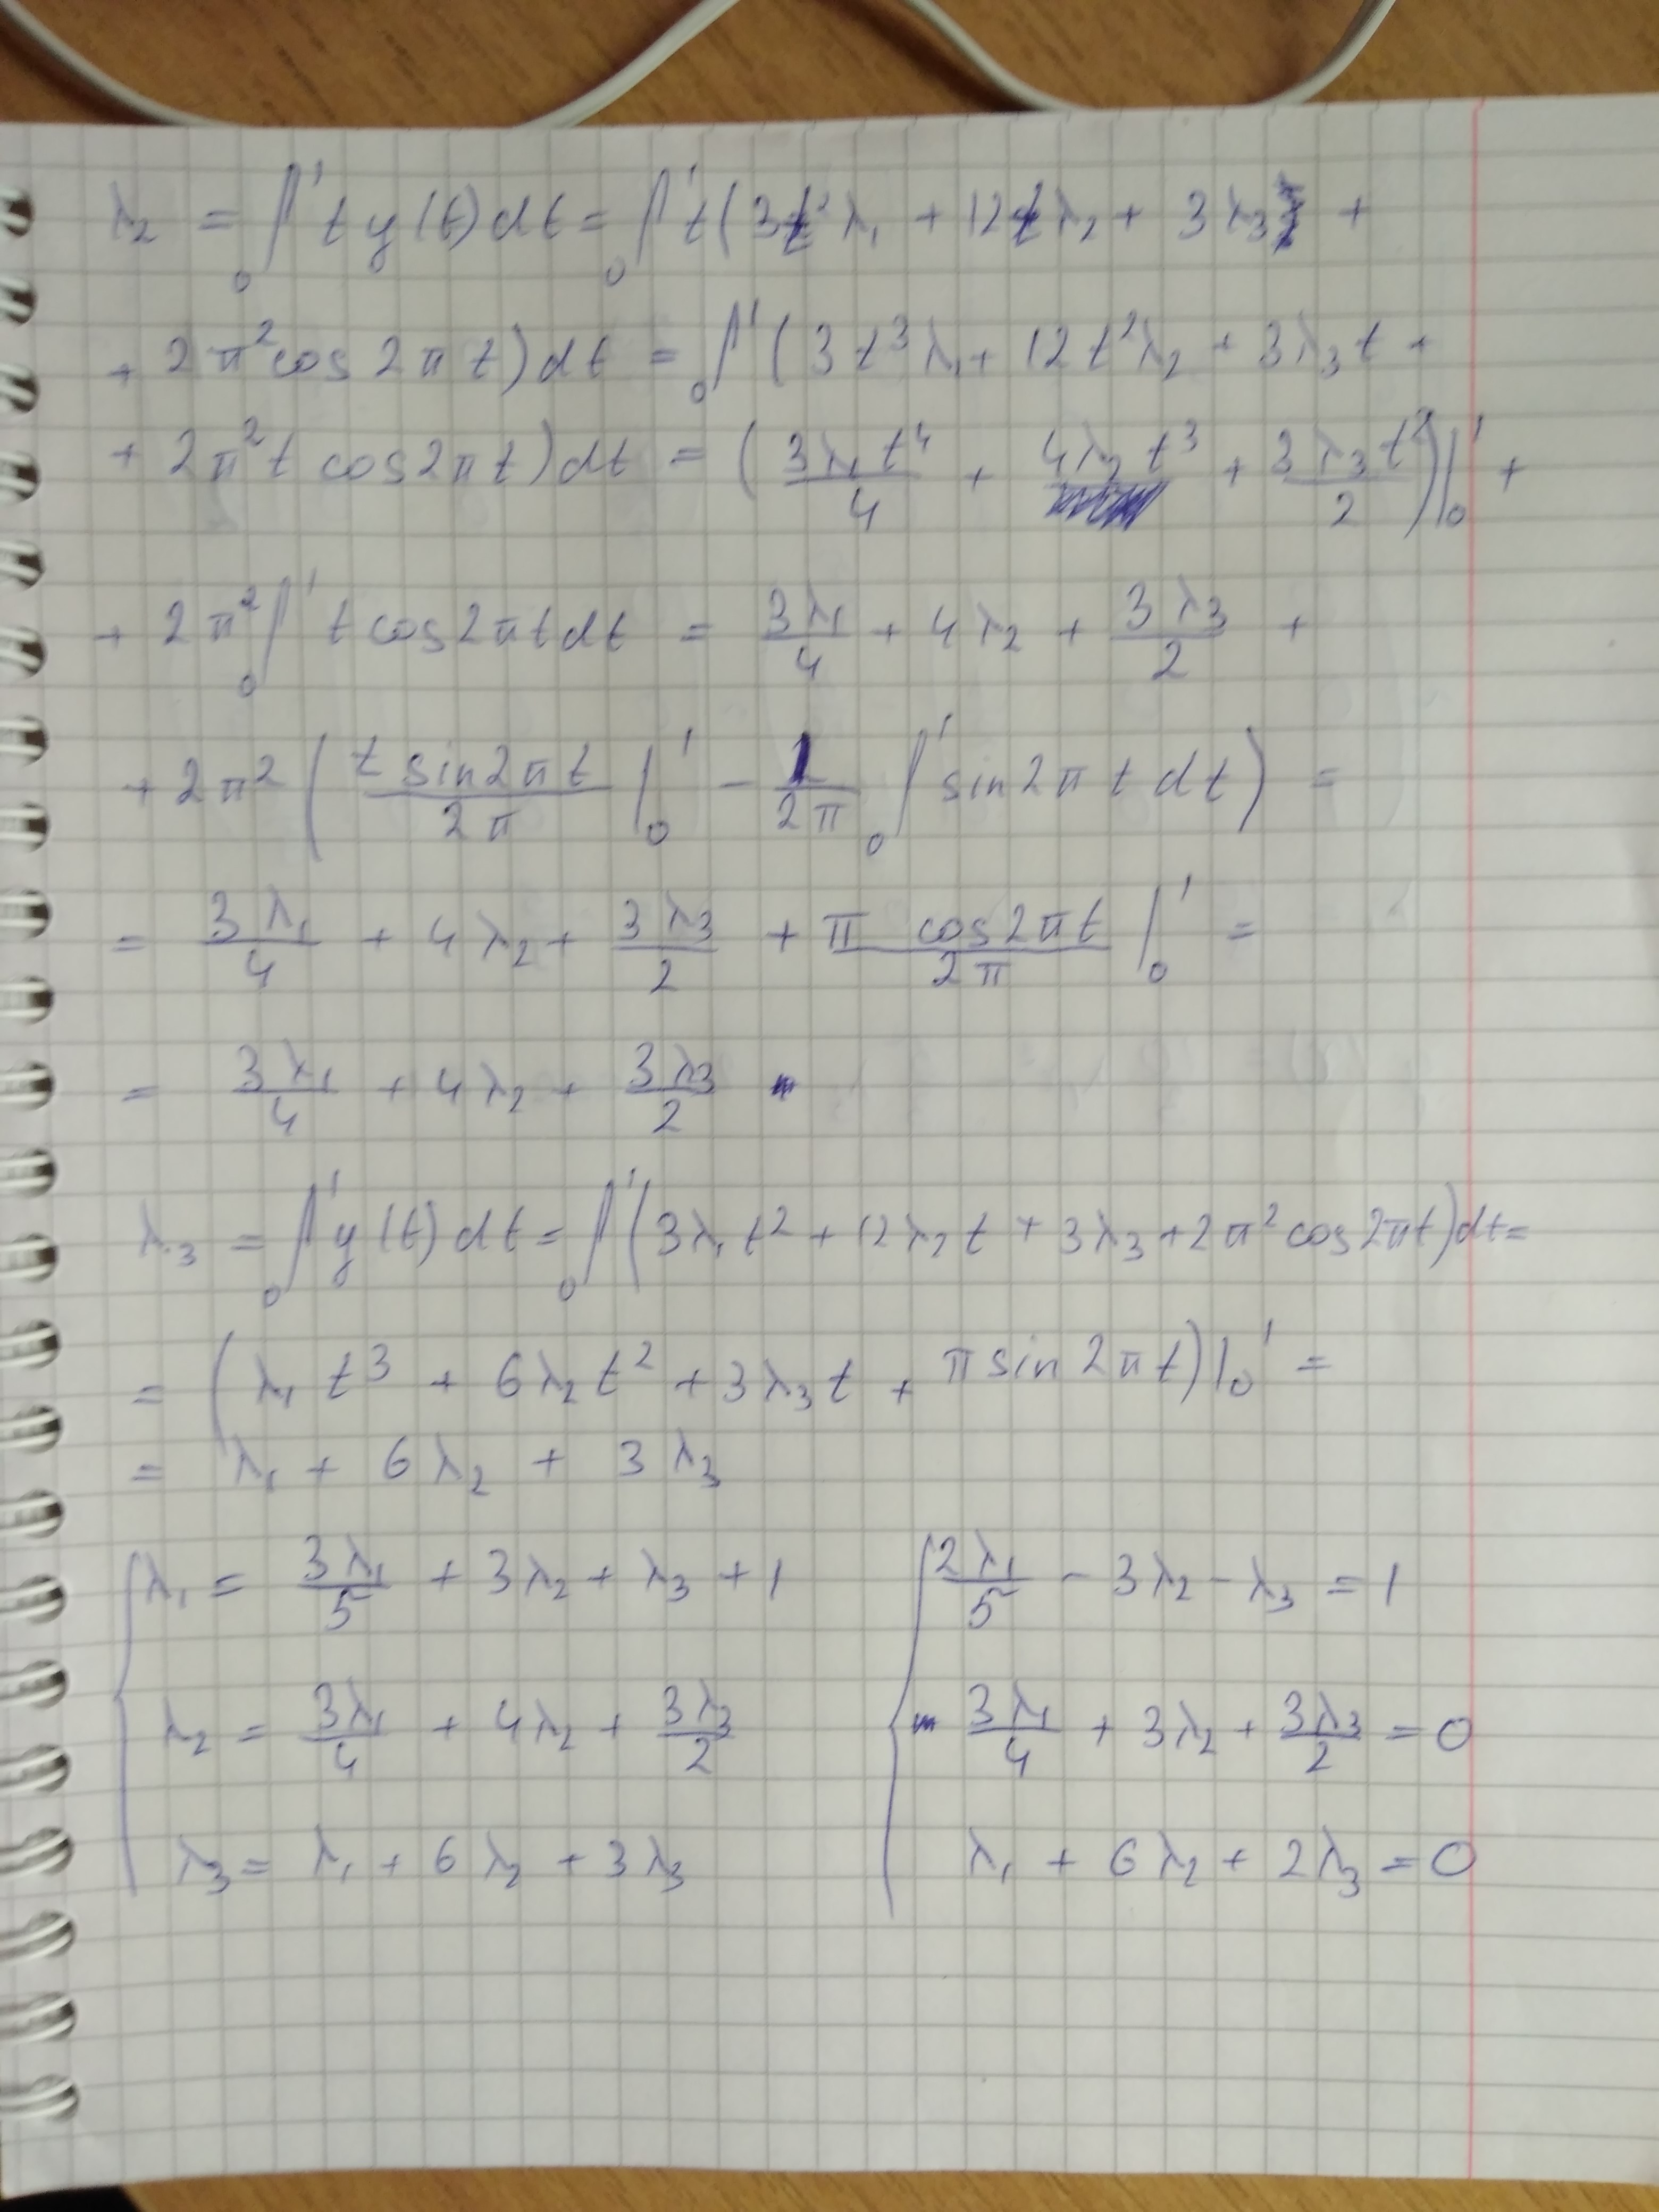 λ₂ = ₀∫¹ t y(t)dt = ₀∫¹ t(3t²λ₁ + 12tλ₂ + 3λ₃ +
+ 2π²cos2πt)dt = ₀∫¹ (3t³λ₁ + 12t²λ₂ + 3λ₃t +
+ 2π²t cos2πt)dt = (3λ₁t⁴/4 + 4λ₂t³ + 3λ₃t²/2)|₀¹ +
+ 2π² ₀∫¹ t cos2πt dt = 3λ₁/4 + 4λ₂ + 3λ₃/2 +
+ 2π² (t sin2πt/2π |₀¹ - 1/2π ₀∫¹ sin2πt dt) =
= 3λ₁/4 + 4λ₂ + 3λ₃/2 + π cos2πt/2π |₀¹ =
= 3λ₁/4 + 4λ₂ + 3λ₃/2
λ₃ = ₀∫¹ y(t)dt = ₀∫¹ (3λ₁t² + 12λ₂t + 3λ₃ + 2π²cos2πt)dt =
= (λ₁t³ + 6λ₂t² + 3λ₃t + π sin2πt)|₀¹ =
= λ₁ + 6λ₂ + 3λ₃
{ λ₁ = 3λ₁/5 + 3λ₂ + λ₃ + 1 { 2λ₁/5 - 3λ₂ - λ₃ = 1
λ₂ = 3λ₁/4 + 4λ₂ + 3λ₃/2 3λ₁/4 + 3λ₂ + 3λ₃/2 = 0
λ₃ = λ₁ + 6λ₂ + 3λ₃ λ₁ + 6λ₂ + 2λ₃ = 0